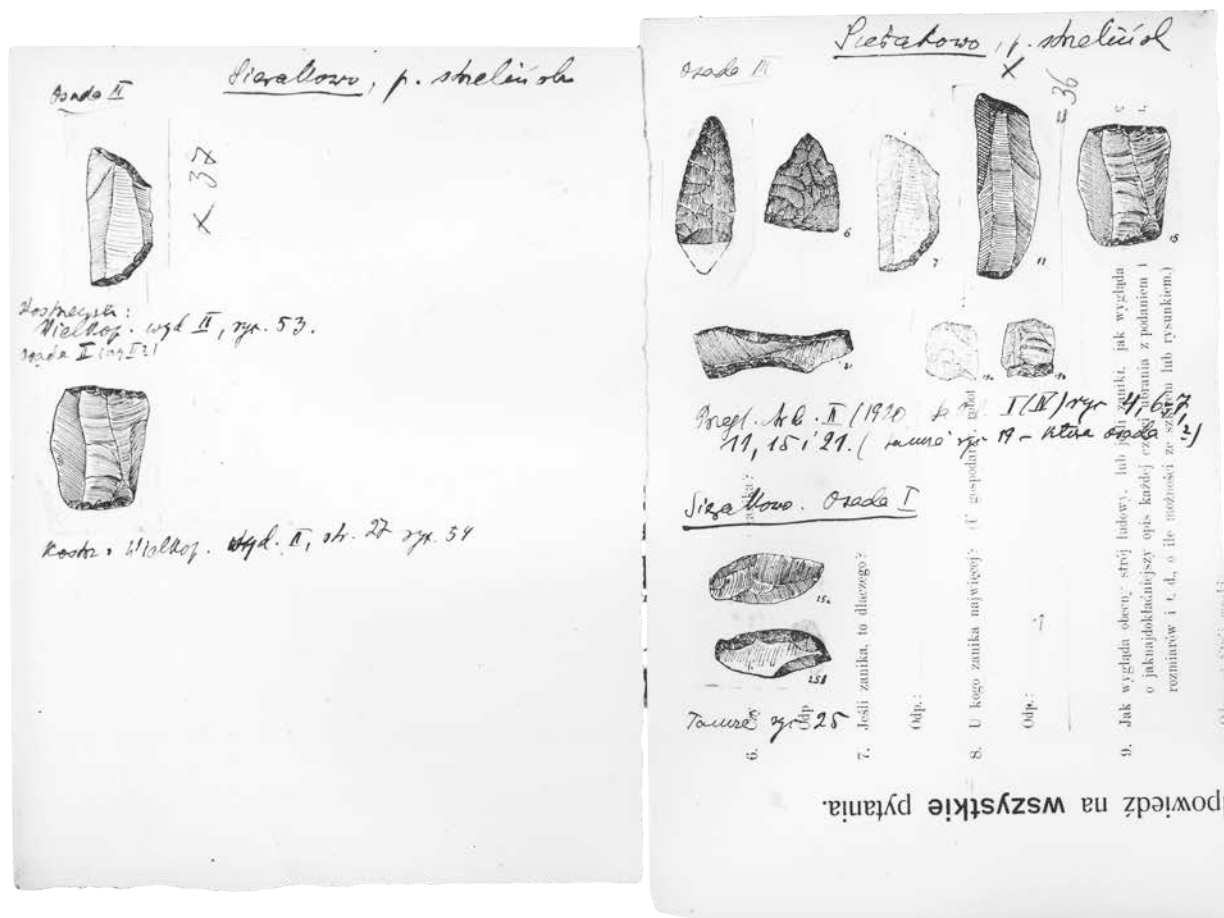 Osada II
Sierakowo, p. strzeliński
x 37
Kostrzewski:
Wielkop. wyd II, ryc. 53.
osada II
Kostrz: Wielkop. wyd. II, str. 27 ryc. 54
Sierakowo, p. strzeliński
Osada II
x
= 36
6
7
11
15
21
19a
19b
Przegl. Arch. II (1920 I (IV) ryc 4, 6, 7,
11, 15 i 21. (tamże ryc 19 – która osada ?)
Sierakowo. Osada I
25a
25b
Tamże ryc 25
6.
Odp
7. Jeśli zanika, to dlaczego?
Odp.:
8. U kogo zanika najwięcej? gospodarzy, robot
Odp.:
9. Jak wygląda obecny strój ludowy, lub jeśli zanikł, jak wygląda
o jaknajdokładniejszy opis każdej części ubrania z podaniem i
rozmiarów i t. d., o ile możności ze szkicu lub rysunkiem.)
powiedź na wszystkie pytania.